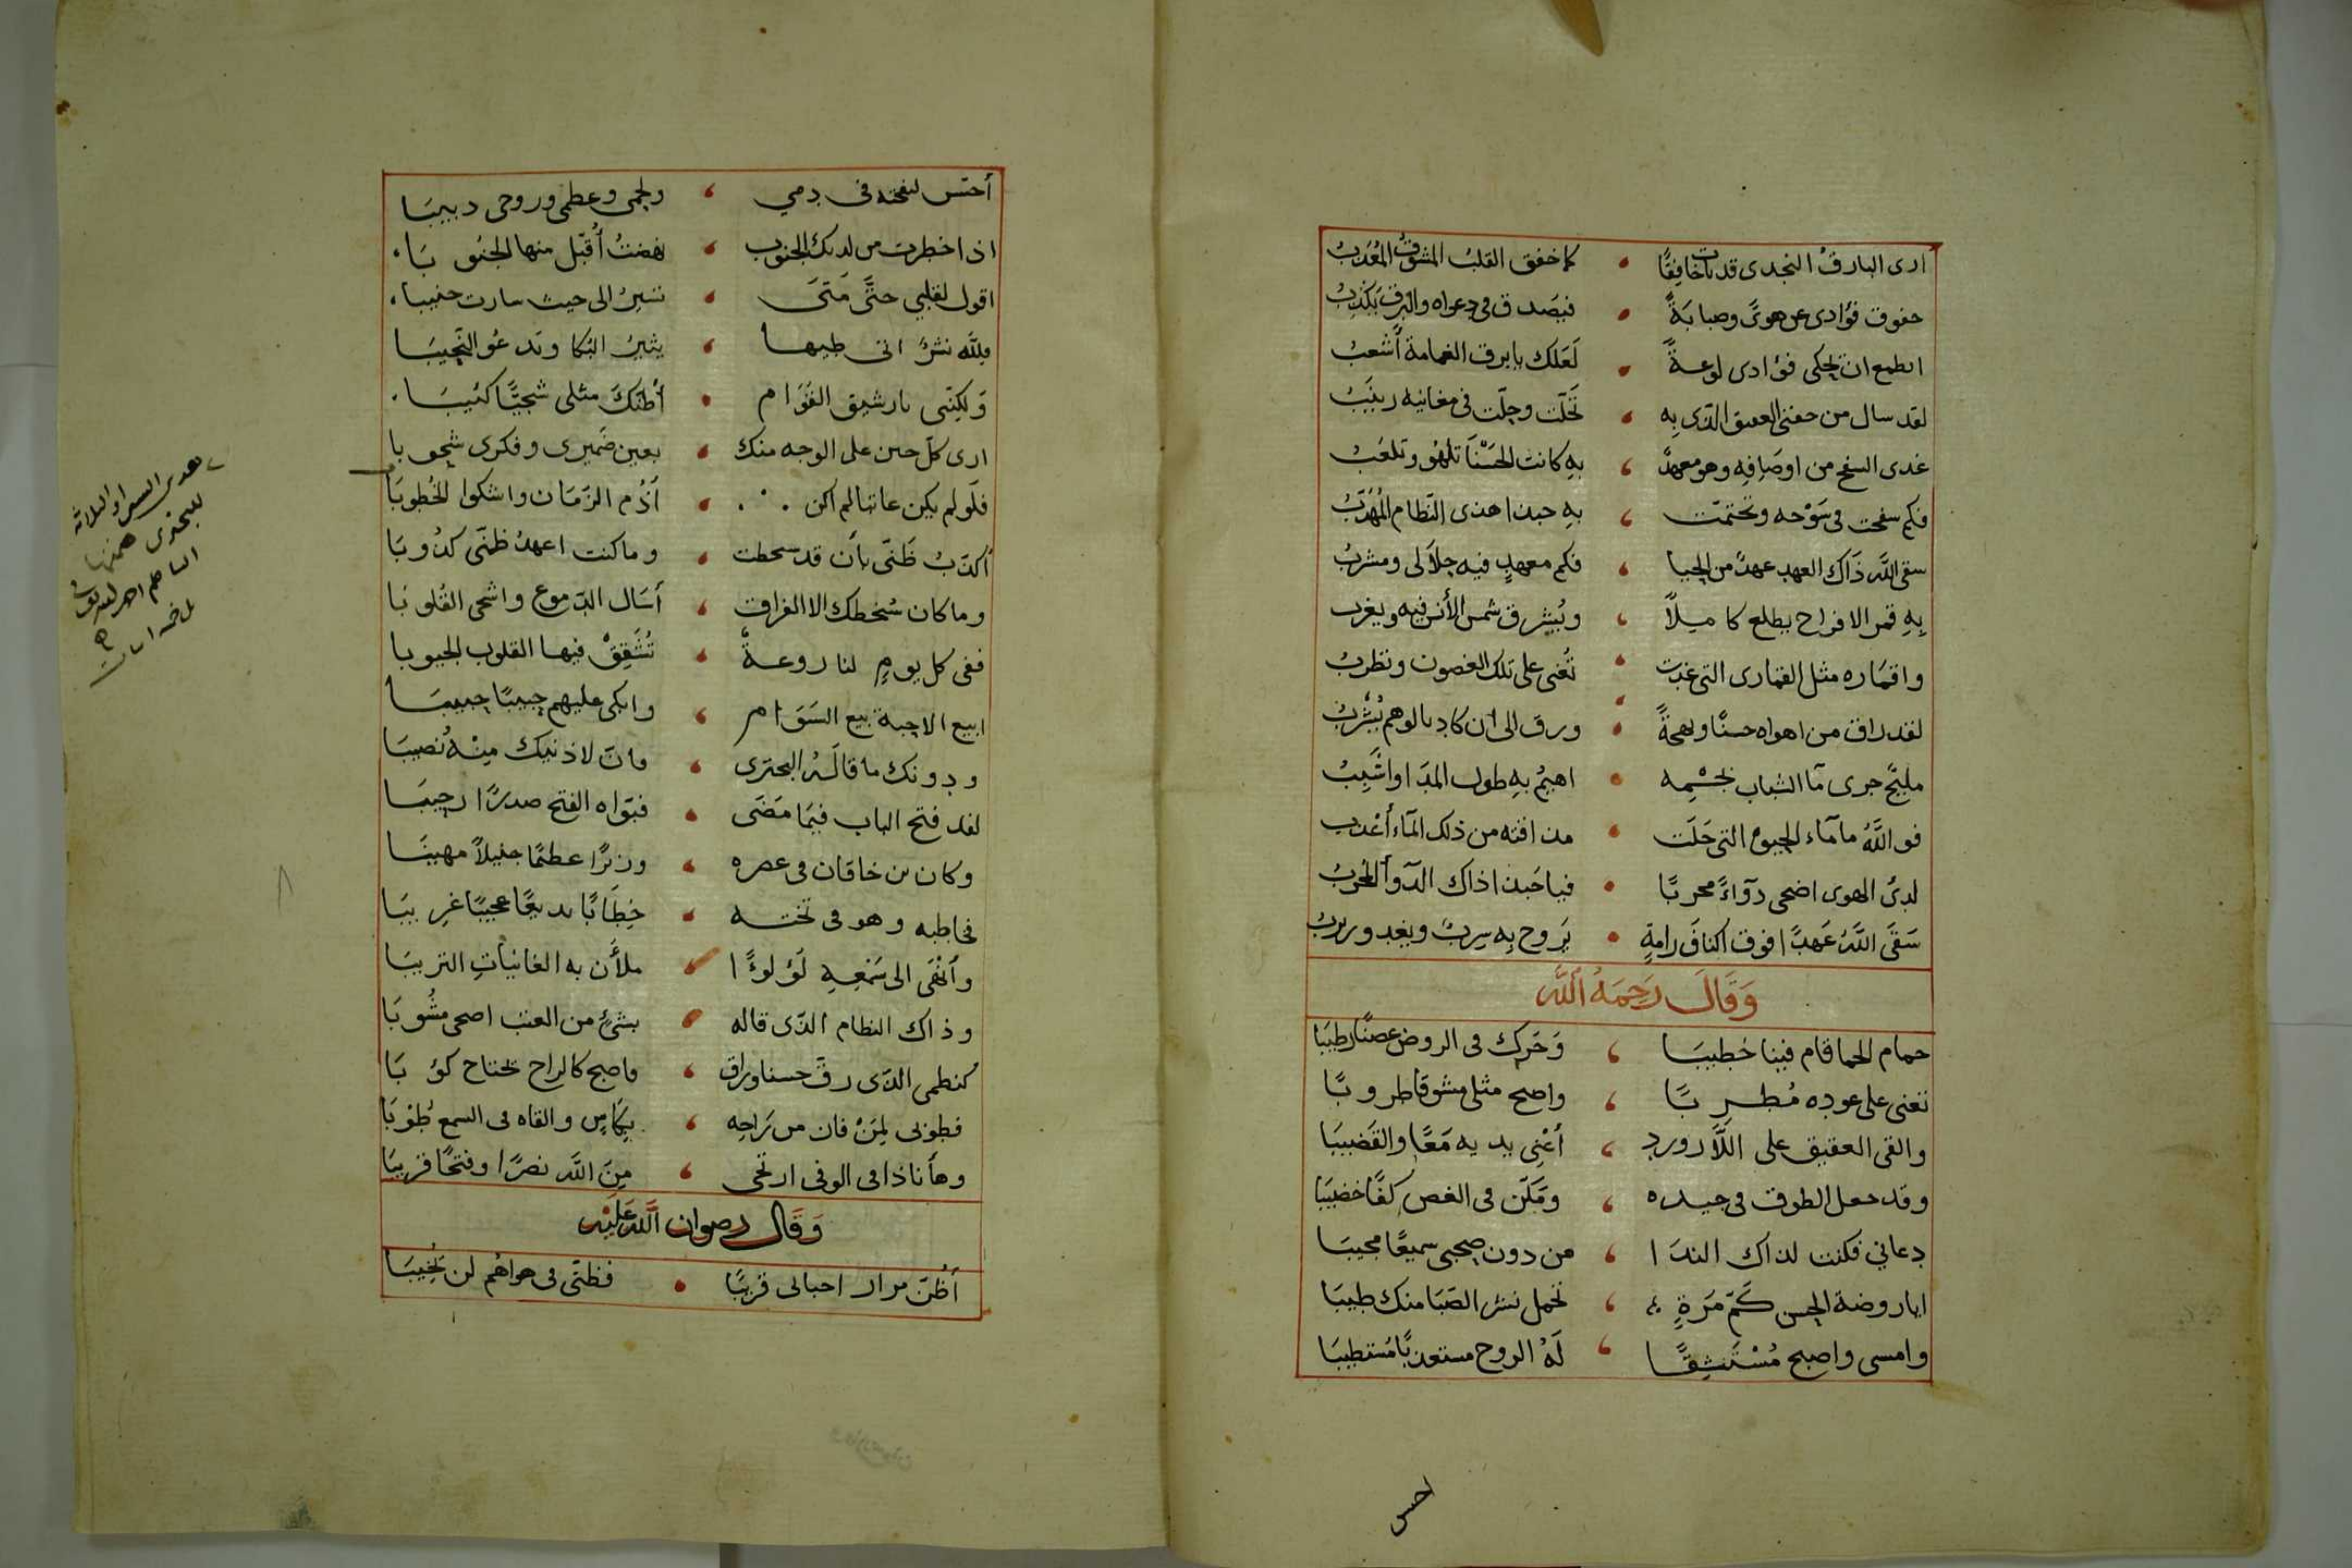 ارى البارق النجدى قد بات خافقًا كما خفق القلبُ المشوقُ المُعَذبُ
خفوق فؤادى عن هوىً وصبابَةً فيصَدق فى دعواه والبرق يَكْذِبُ
اتطمع ان تحكى فؤادى لوعةً لَعَلك يا برق الغمامة أشعبُ
لقد سال من جفنى العقيق الذى بِه تحَلّت وحلّت فى مغانيه زينَبُ
غدى السفح من اوصَافِه وهو معهدٌ بِه كانت الحَسْنَا تلهُو وتلعَبُ
فكم سفحت فى سَوْحه وتختمت بِه حبذا هذى النظام المُهَذّبُ
سقى اللّه ذَاك العهد عهدٌ من الحيا فكم معهدٍ فيه جلاَلى ومشربُ
بِه قمر الافراح يطلع كاملاً ويُشرق شمس الأنس فيه ويغرب
واقمَاره مثل القمارى التى غدت تُغنى على تلك الغصون وتطربُ
لقد راق من اهواه حسنًا وبهجةً ورق الى ان كاد بالوهم يُشْرَبُ
مليحٌ جرى مآ الشباب بجسْمِه اهيمُ بِه طول المدَا واشَبِبُ
فو اللّهُ ما مآء الحيوة التى حَلَت مذاقته من ذلك المآء أعْذب
لدىُ الهوى اضحى دوَآءً مجربًا فيا حَبذا ذاك الدّوآ المجربُ
سَقَى اللّهُ عَهدًا فوق اكناف رامةٍ يَروح بِه سِربٌ ويغدو ربربُ
وَقَالَ رَحِمَهُ اللّه
حمام الحما قام فينا خَطيبَا وَحَرك فى الروض غصنًا رطيبَا
تغنى على عوده مُطْربًا واصبح مثلى مشوقا طروبًا
والقى العقيق على اللّازورد أعْنِى يديه مَعًا والقَضيبَا
وقد جعل الطوق فى جيده ومَكّن فى الغصن كفًا خضيبَا
دعانى فكنت لذاك الندَا من دون صحبى سميعًا مجيبَا
ايا روضة الحسن كَمّ مَرَةٍ تحمل نشر الصّبَا منك طيبَا
وامسى واصبح مُسْتَنشِقًا لَهُ الروح مستعذبًا مُستطيبَا
احس
أحسّ لنفحته فى دمي ولحمى وعظمى وروحى دبيبَا
اذا خطرت من لدنك الجنوب نهضتُ أُقبّل منها الجنُوبَا
اقول لقلبي حتَّى مَتىَ تسيرُ الى حيث سارت جنيبا
فلِلّه نشرٌ اتى طيها يثيرُ البكا وتدعُو النّحِيبَا
وَلكِنّنى يا رشيق القَوَام أظنكَ مثلى شجيًّا كئيبَا
ارى كلّ حسن على الوجه منك بعين ضَميرى وفكرى شحوبا
فلَو لم يكن عاتبا لم اكن أذُم الزمَان واشكوا الخُطوبَا
أكذّبُ ظَنّى بأن قد سخطت وما كنت اعهدُ ظنّى كذُوبَا
وما كان سُخطك الا الفراق أسَال الدّموع واشجى القُلوبَا
ففى كل يومٍ لنا روعةٌ تُشَقِقُ فيها القلوب الجيوبا
ابيع الاحبة بيع السَوَام وابكى عليهم حبيبًا حبيبَا
ودونك ما قالَهُ البحترى فانّ لاذنيك مِنْهُ نُصيبَا
لقد فتح الباب فيمَا مَضَى فبَوّاه الفتح صدرًا رحيبَا
وكان بن خاقان فى عصره وزيرًا عظيمًا جليلاً مهيبًا
فخاطبه وهو فى تخته خِطَابًا بديعًا عجيبًا غرِيبَا
وألقَى الى سَمْعِهِ لؤلوءًا ملأن به الغانيَاتِ التريبَا
وذاك النظام الذّى قاله بشئٍ من العتب اضحى مشُوبَا
كنظمى الذّى رقّ حسنا وراق فاصبح كالراح تحتاح كوُبَا
فطوبى لِمَنْ فاز من رَاحِه بِكَاسٍ والقاه فى السمع طُوْبَا
وهأنا ذا فى الوفى ارتجى مِنَ اللّه نصرًا وفتحًا قريبَا
وَقَال رضوان اللّه عليْهِ
أظُنّ مزار احبابى قريبًا فظنّى فى هواهُم لن يخيبَا